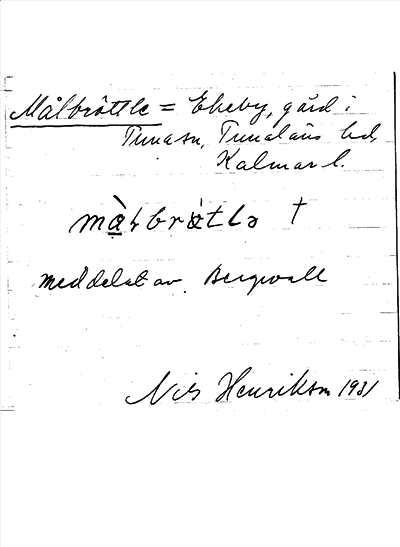 Målbråttle = Ekeby, gård i
Tuna sn, Tunaläns hd,
Kalmar l.
màḷbràtlə †
meddelat av Bergwall
Nils Henrikson 1931